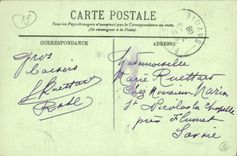 CARTE POSTALE
Les Pays étrangers n'acceptent pas la Correspondance au recto.
(Se renseigner à la Poste)
CORRESPONDANCE
ADRESSE
Gros
baisers
Mademoiselle
Marie Ruettard
Chez Monsieur Marin
St Nicolas la Chapelle
près Flumet
Savoie